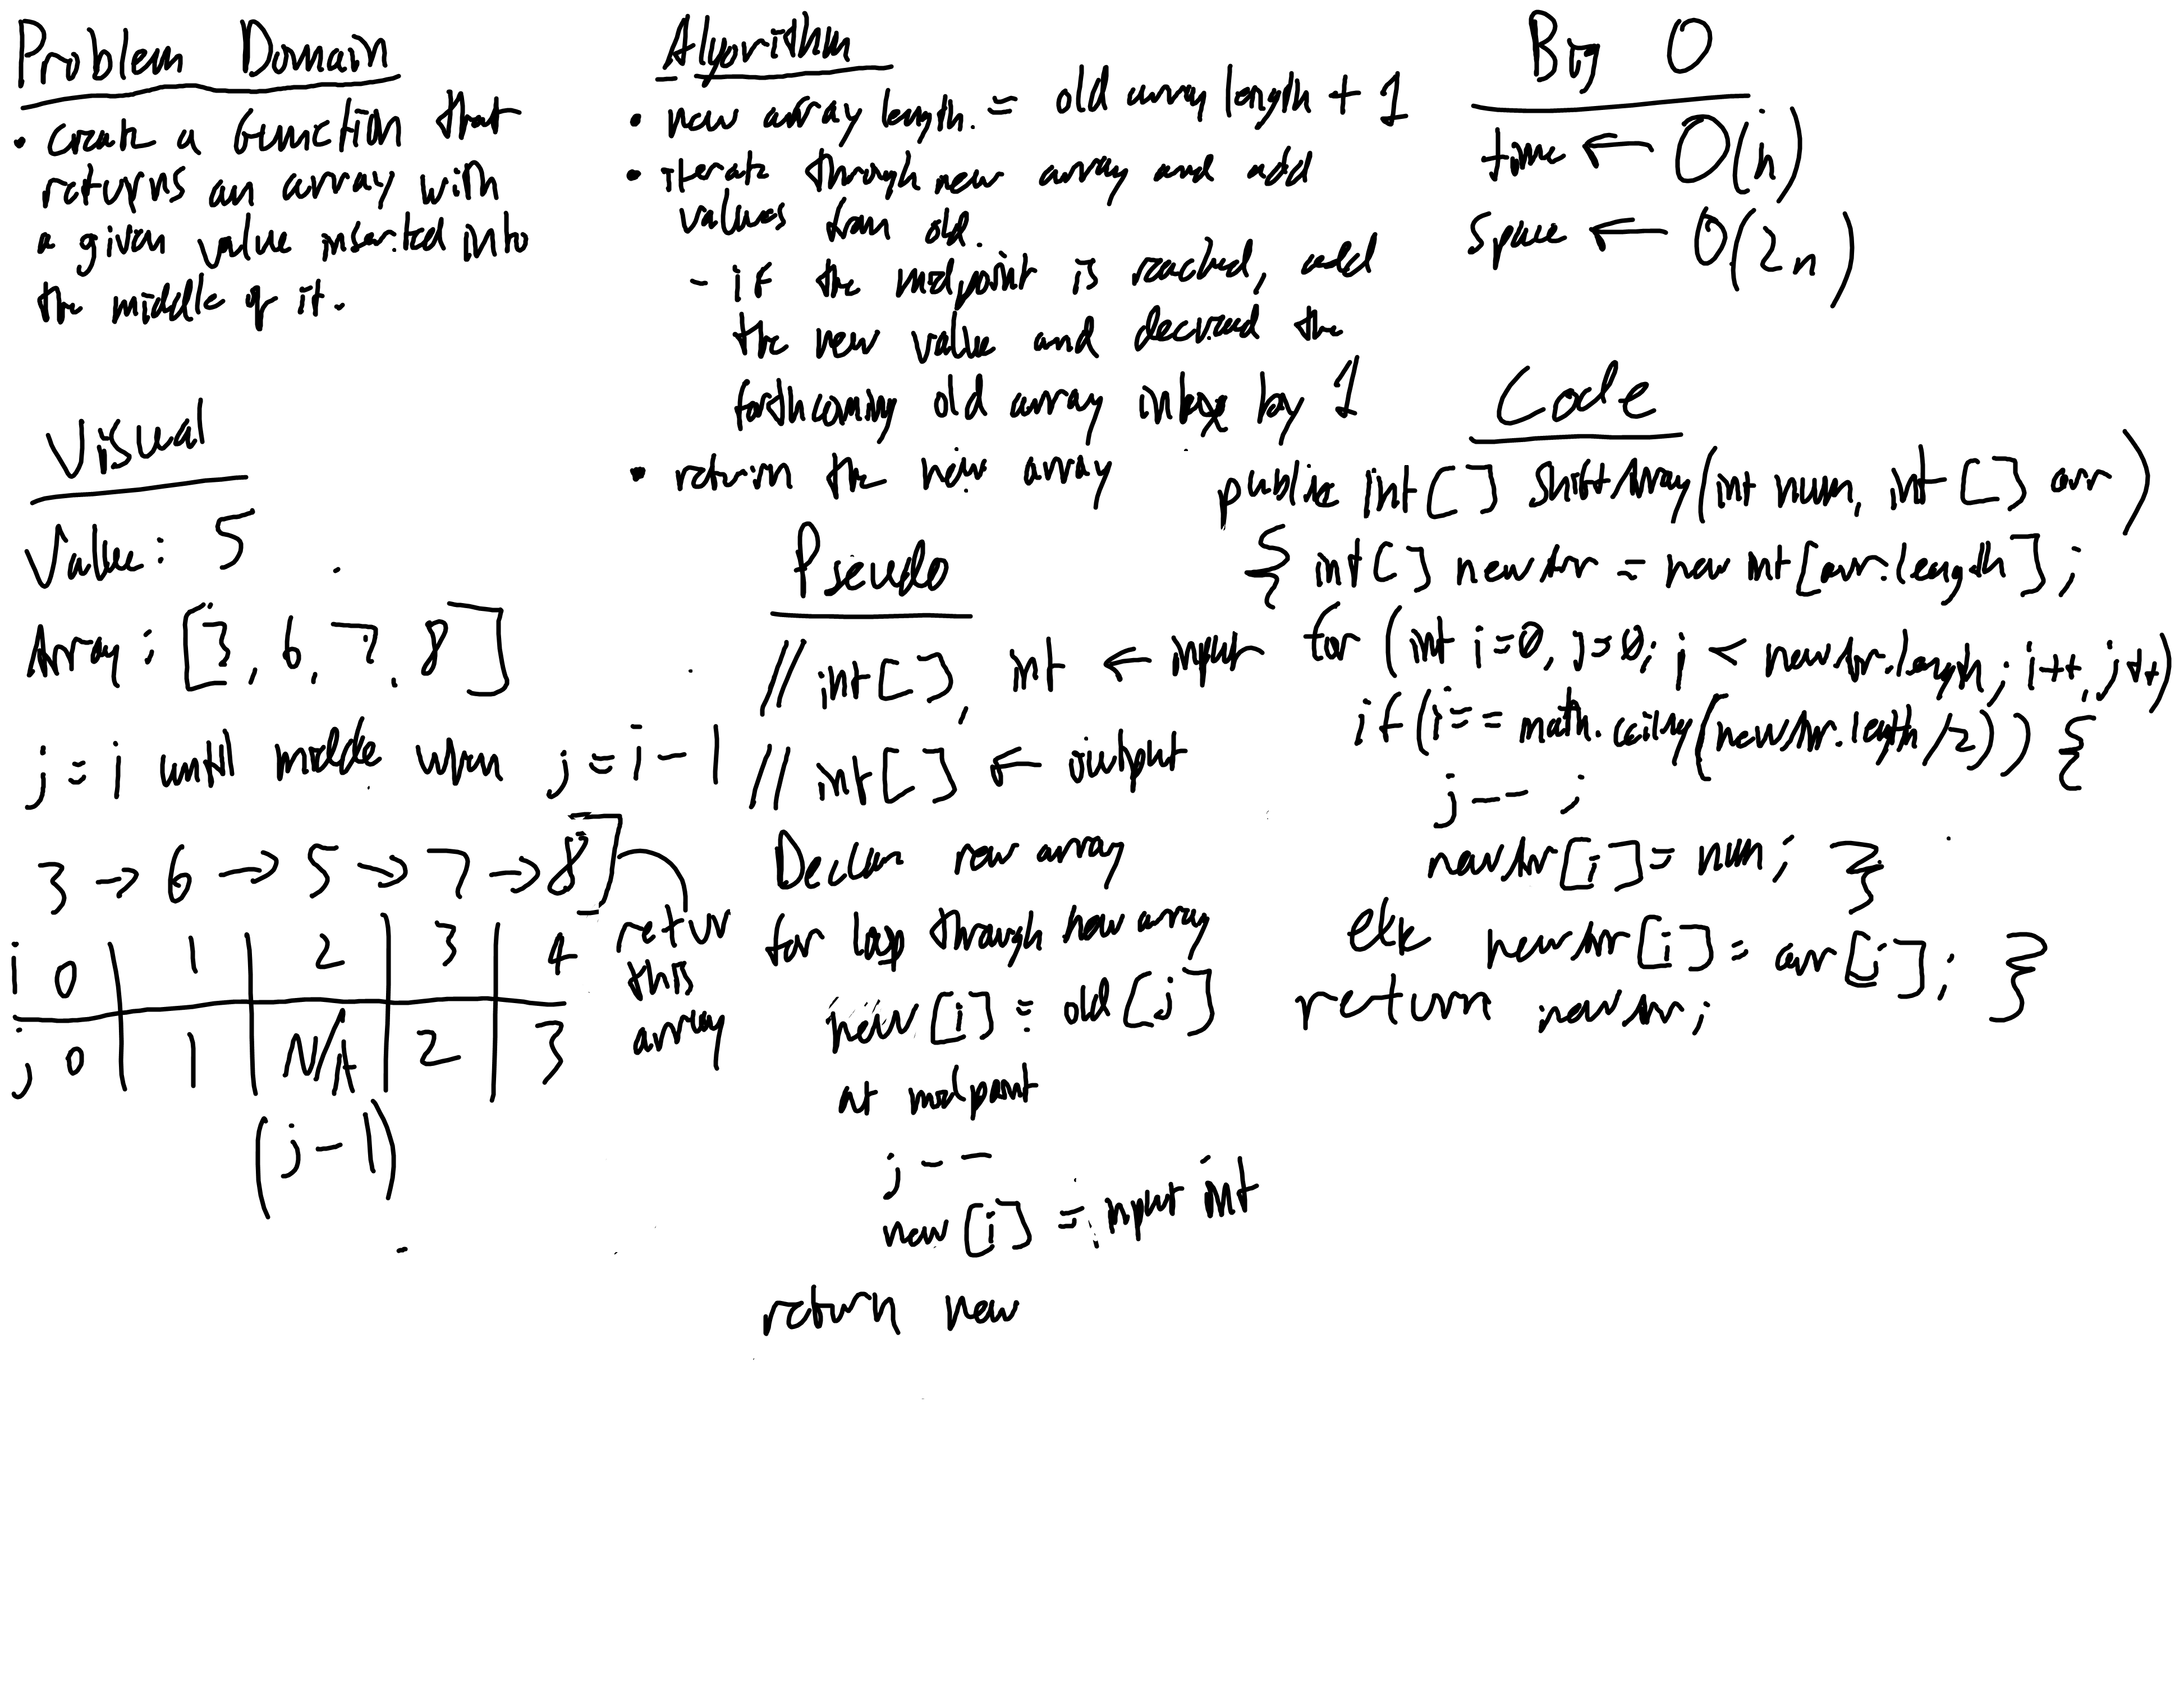 Problem Domain
• create a function that
returns an array with
a given value inserted into
the middle of it.
Visual
Value: 5
Array: [3, 6, 7, 8]
j = i until middle when j = i - 1
3 → 6 → 5 → 7 → 8]
return
this
array
i 0 | 1 | 2 | 3 | 4
j 0 | 1 | N/A | 2 | 3
(j-1)
Algorithm
• new array length = old array length + 1
• iterate through new array and add
values from old.
- if the midpoint is reached, add
the new value and decrement the
forthcoming old array index by 1
• return the new array
Pseudo
// int[], int ← input
// int[] ← output
Declare new array
for loop through new array
new[i] = old[j]
at midpoint
j--
new[i] = input int
return new
Big O
time ← O(n)
Space ← O(2n)
Code
public int[] ShiftArray(int num, int[] arr)
{ int[] newArr = new int[arr.length];
for (int i=0, j=0; j < newArr.length; i++, j++)
if (i == math.ceiling(newArr.length/2)) {
j--;
newArr[i] = num; }
else newArr[i] = arr[j]; }
return newArr;